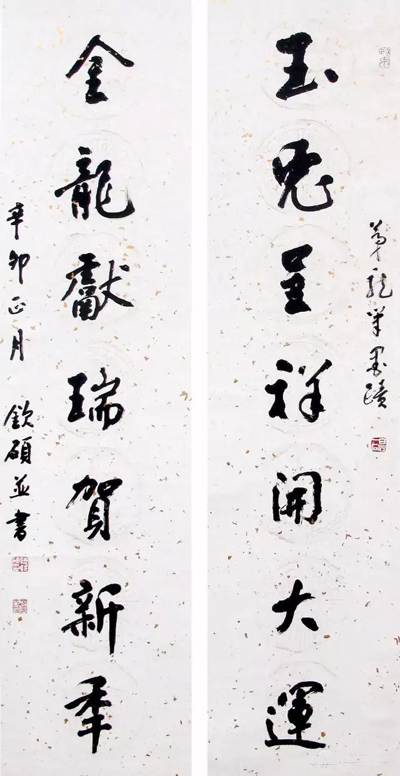 玉兔呈祥開大運
墨蹟
金龍獻瑞賀新年
辛卯正月 欽碩並書